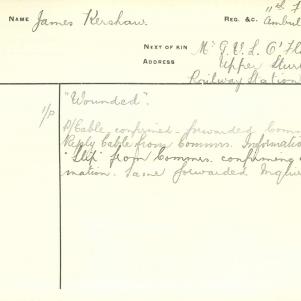 NAME James Kershaw. REG. &C. 11th F
Ambul
NEXT OF KIN Mr G. V. L. O'Fl
ADDRESS Upper Sturt
Railway Station
"Wounded".
1/P
P/Cable confirmed forwarded Comm
Reply Cable from Commrs. Informatio
"Slip" from Commrs. confirming
mation. Same forwarded Inquir